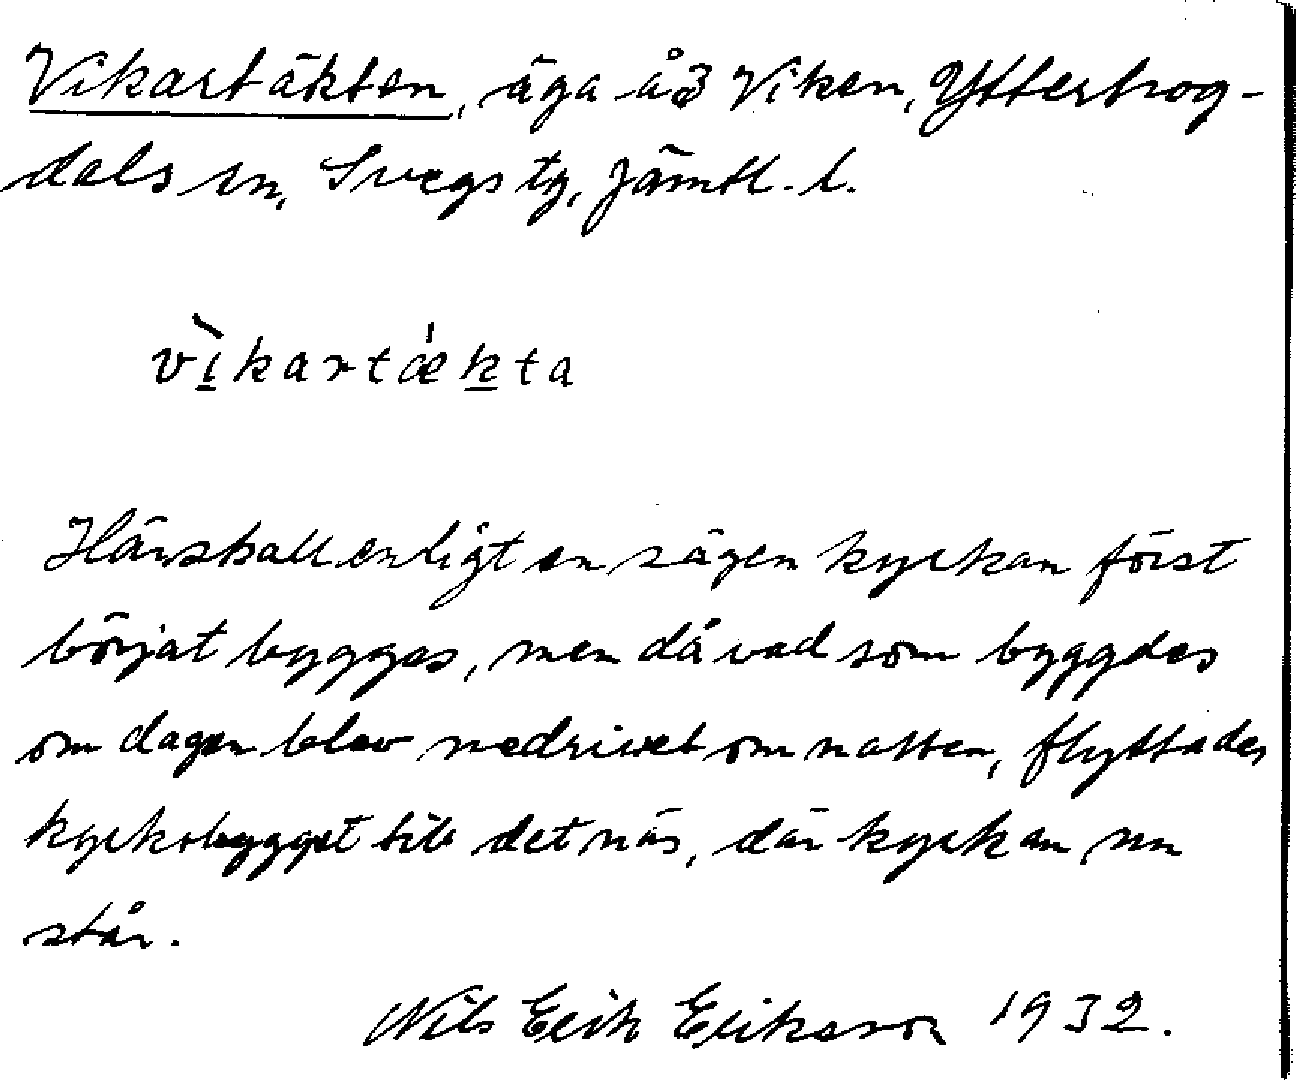 Vikartäkten, äga å 3 Viken, Ytterhog-
dals sn, Svegs tg, Jämtl. l.
vìkartǽkta
Här skall enligt en sägen kyrkan först
börjat byggas, men då vad som byggdes
om dagen blev nedrivet om natten, flyttades
kyrkobygget till det näs, där kyrkan nu
står.
Nils Erik Eriksson 1932.